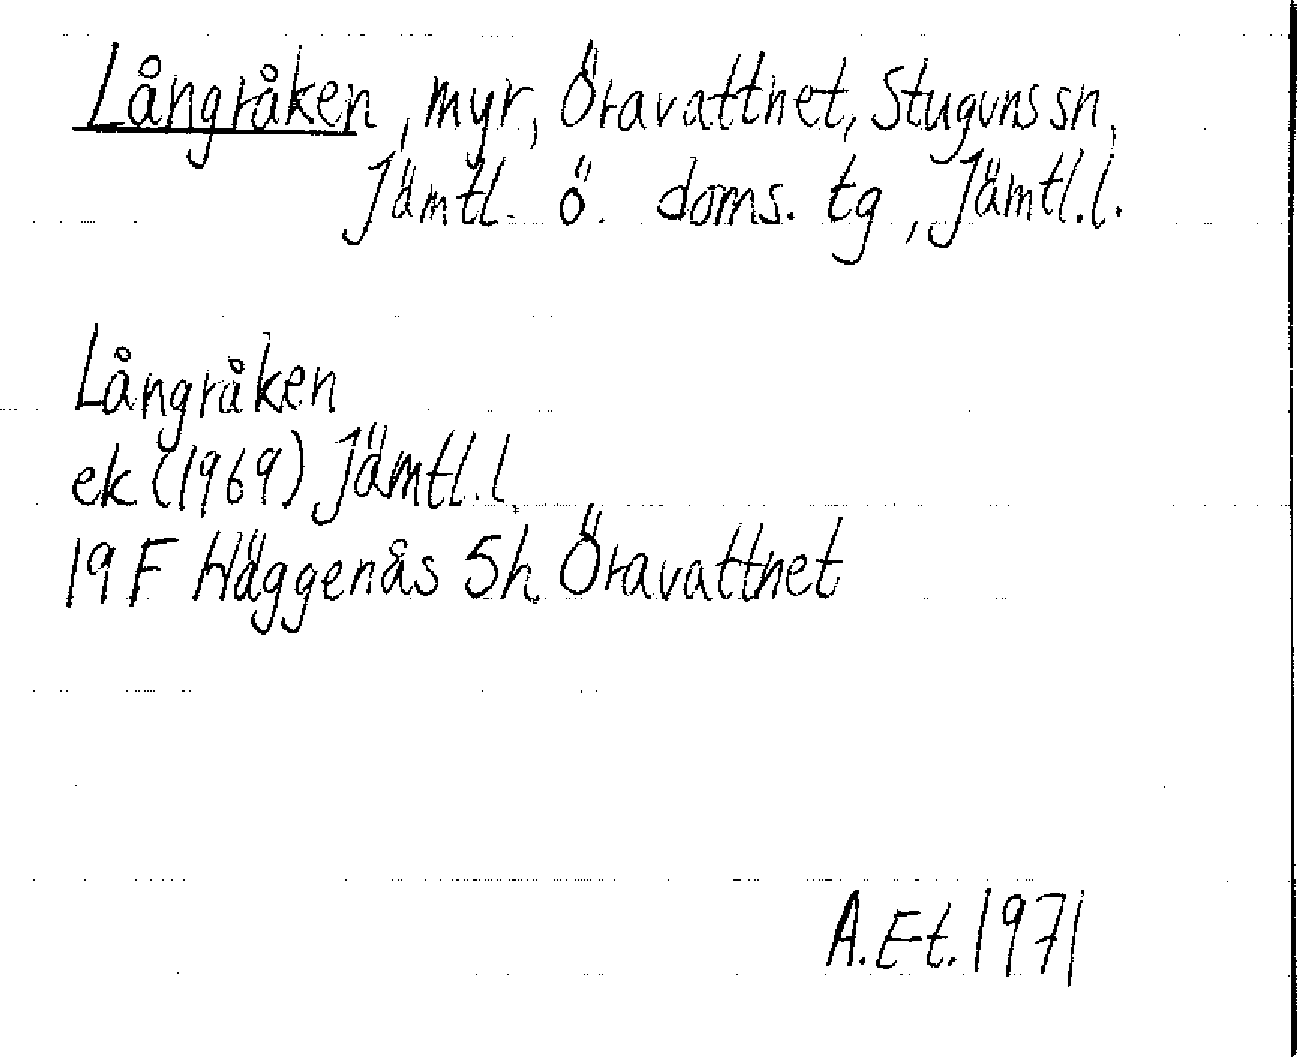 Långråken, myr, Öravattnet, Stuguns sn,
Jämtl. ö. doms. tg, Jämtl.l.
Långråken
ek (1969) Jämtl.l.
19F Häggenås 5h Öravattnet
A.Et.1971